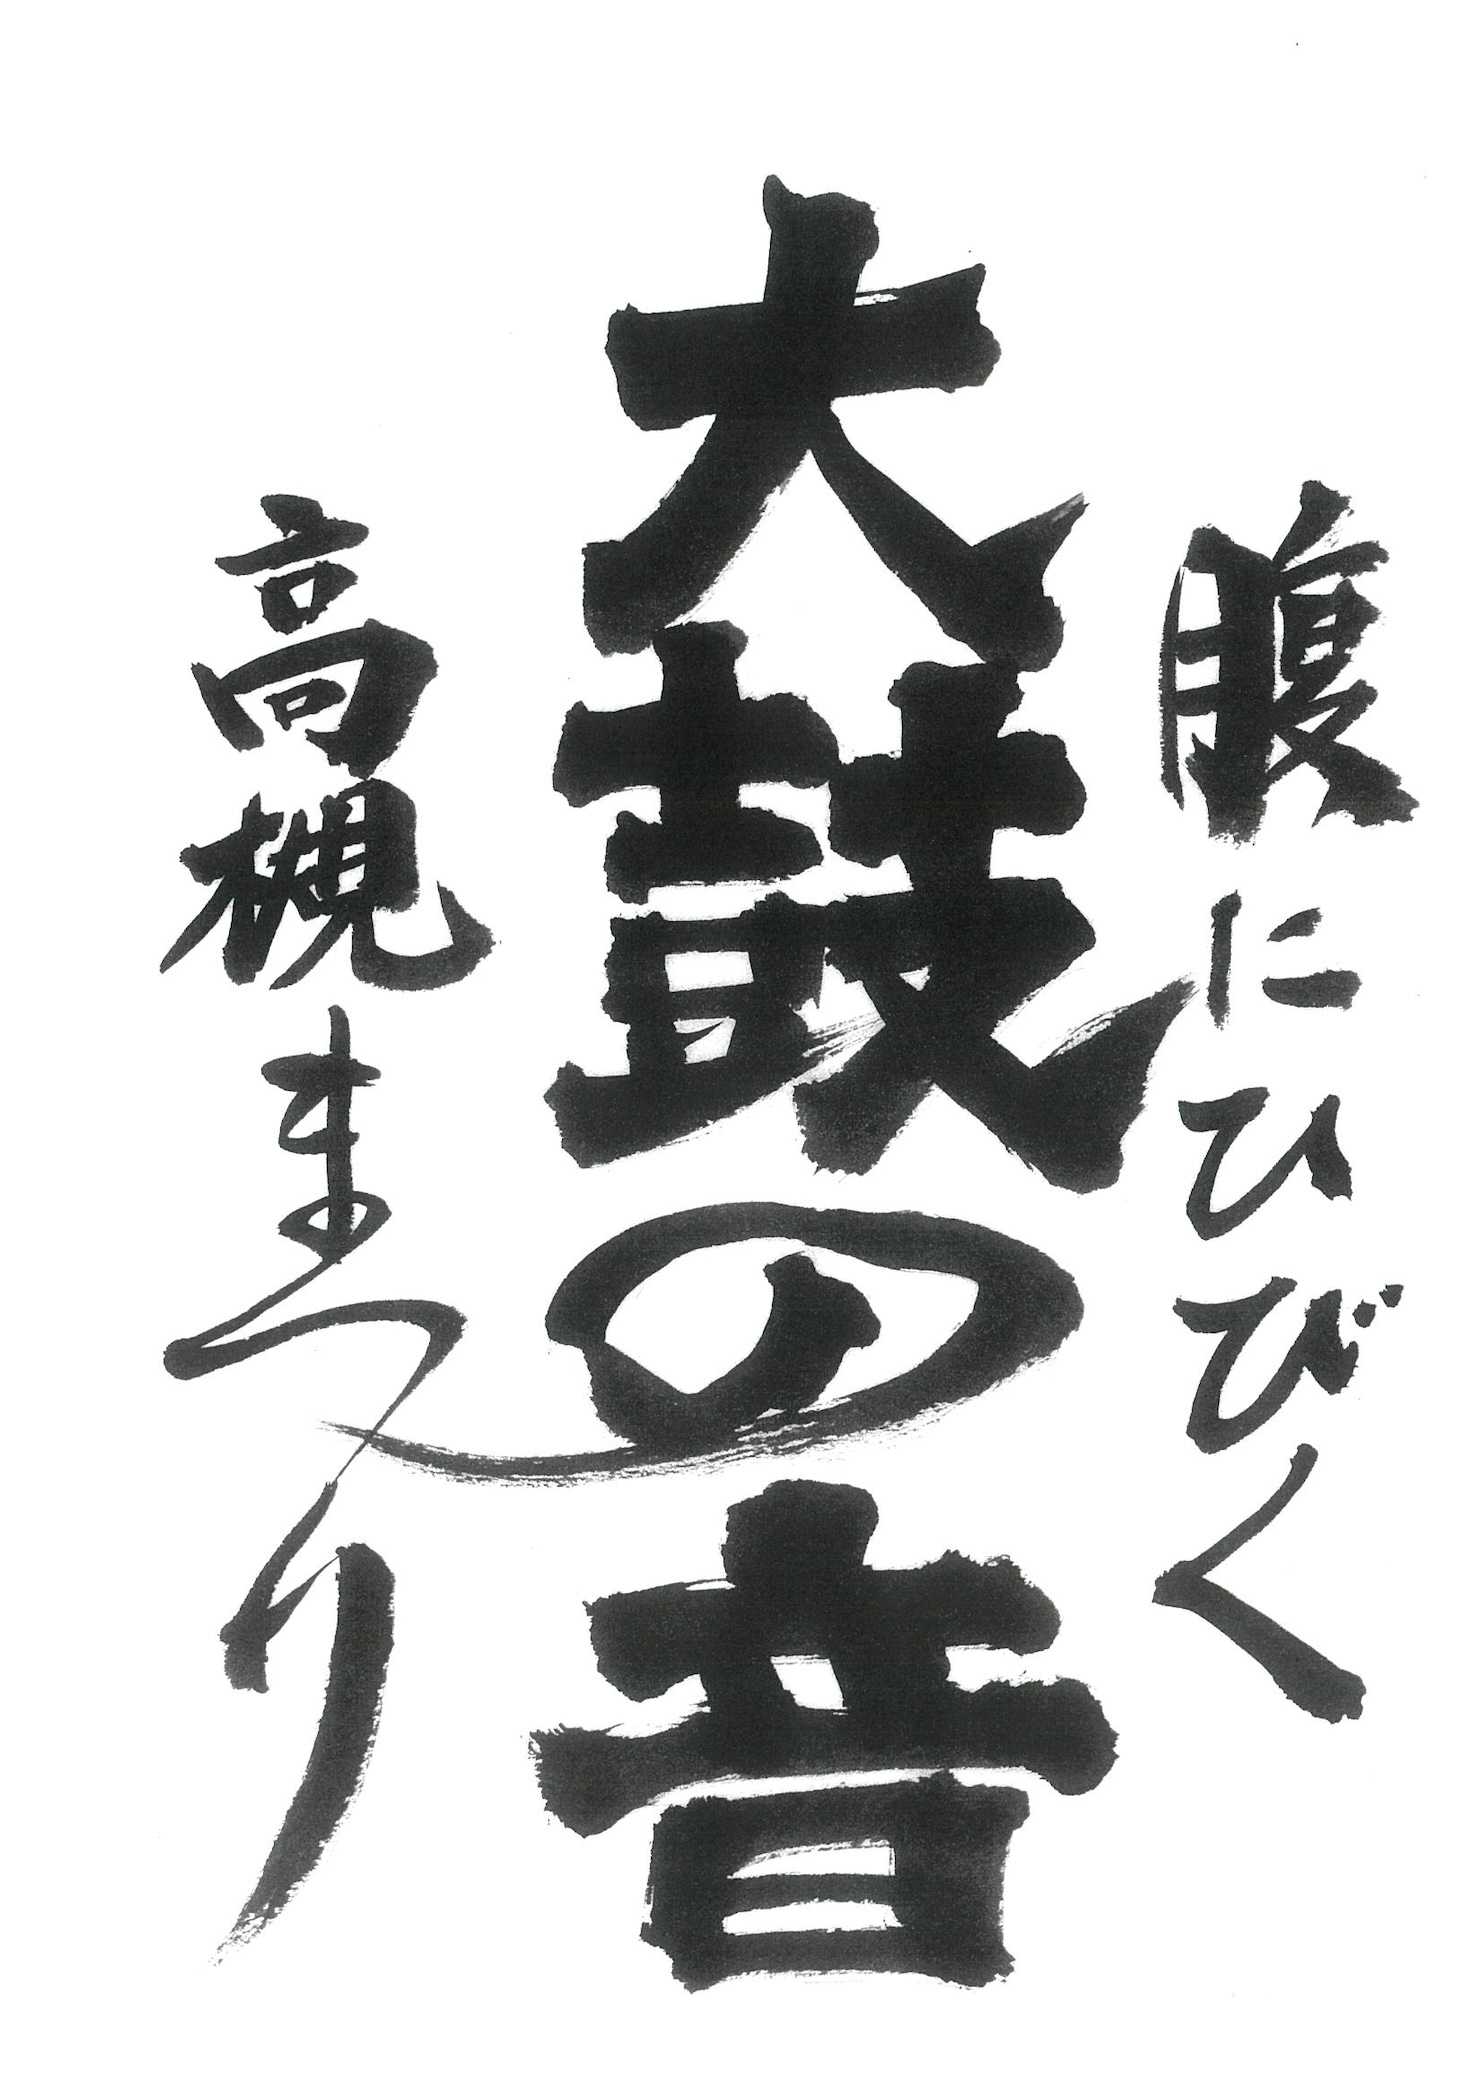 腹にひびく
大鼓の音
高槻まつり